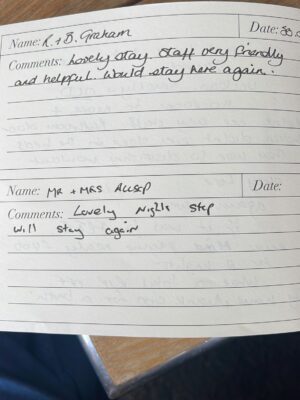 Name: R. + B. Graham Date: 30
Comments: Lovely stay. Staff very friendly
and helpful. Would stay here again.
Name: MR + MRS Date:
Comments: Lovely Nights Stop
Will stay again